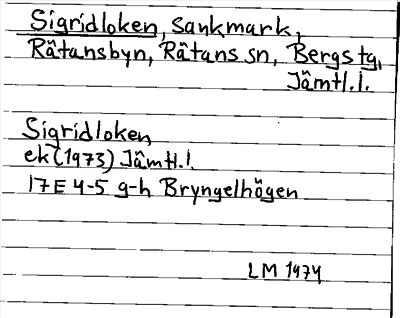 Sigridloken, sankmark,
Råtansbyn, Råtans sn, Bergs tg,
Jämtl.l.
Sigridloken
ek (1973) Jämtl.l.
17E 4-5 g-h Bryngelhögen
LM 1974